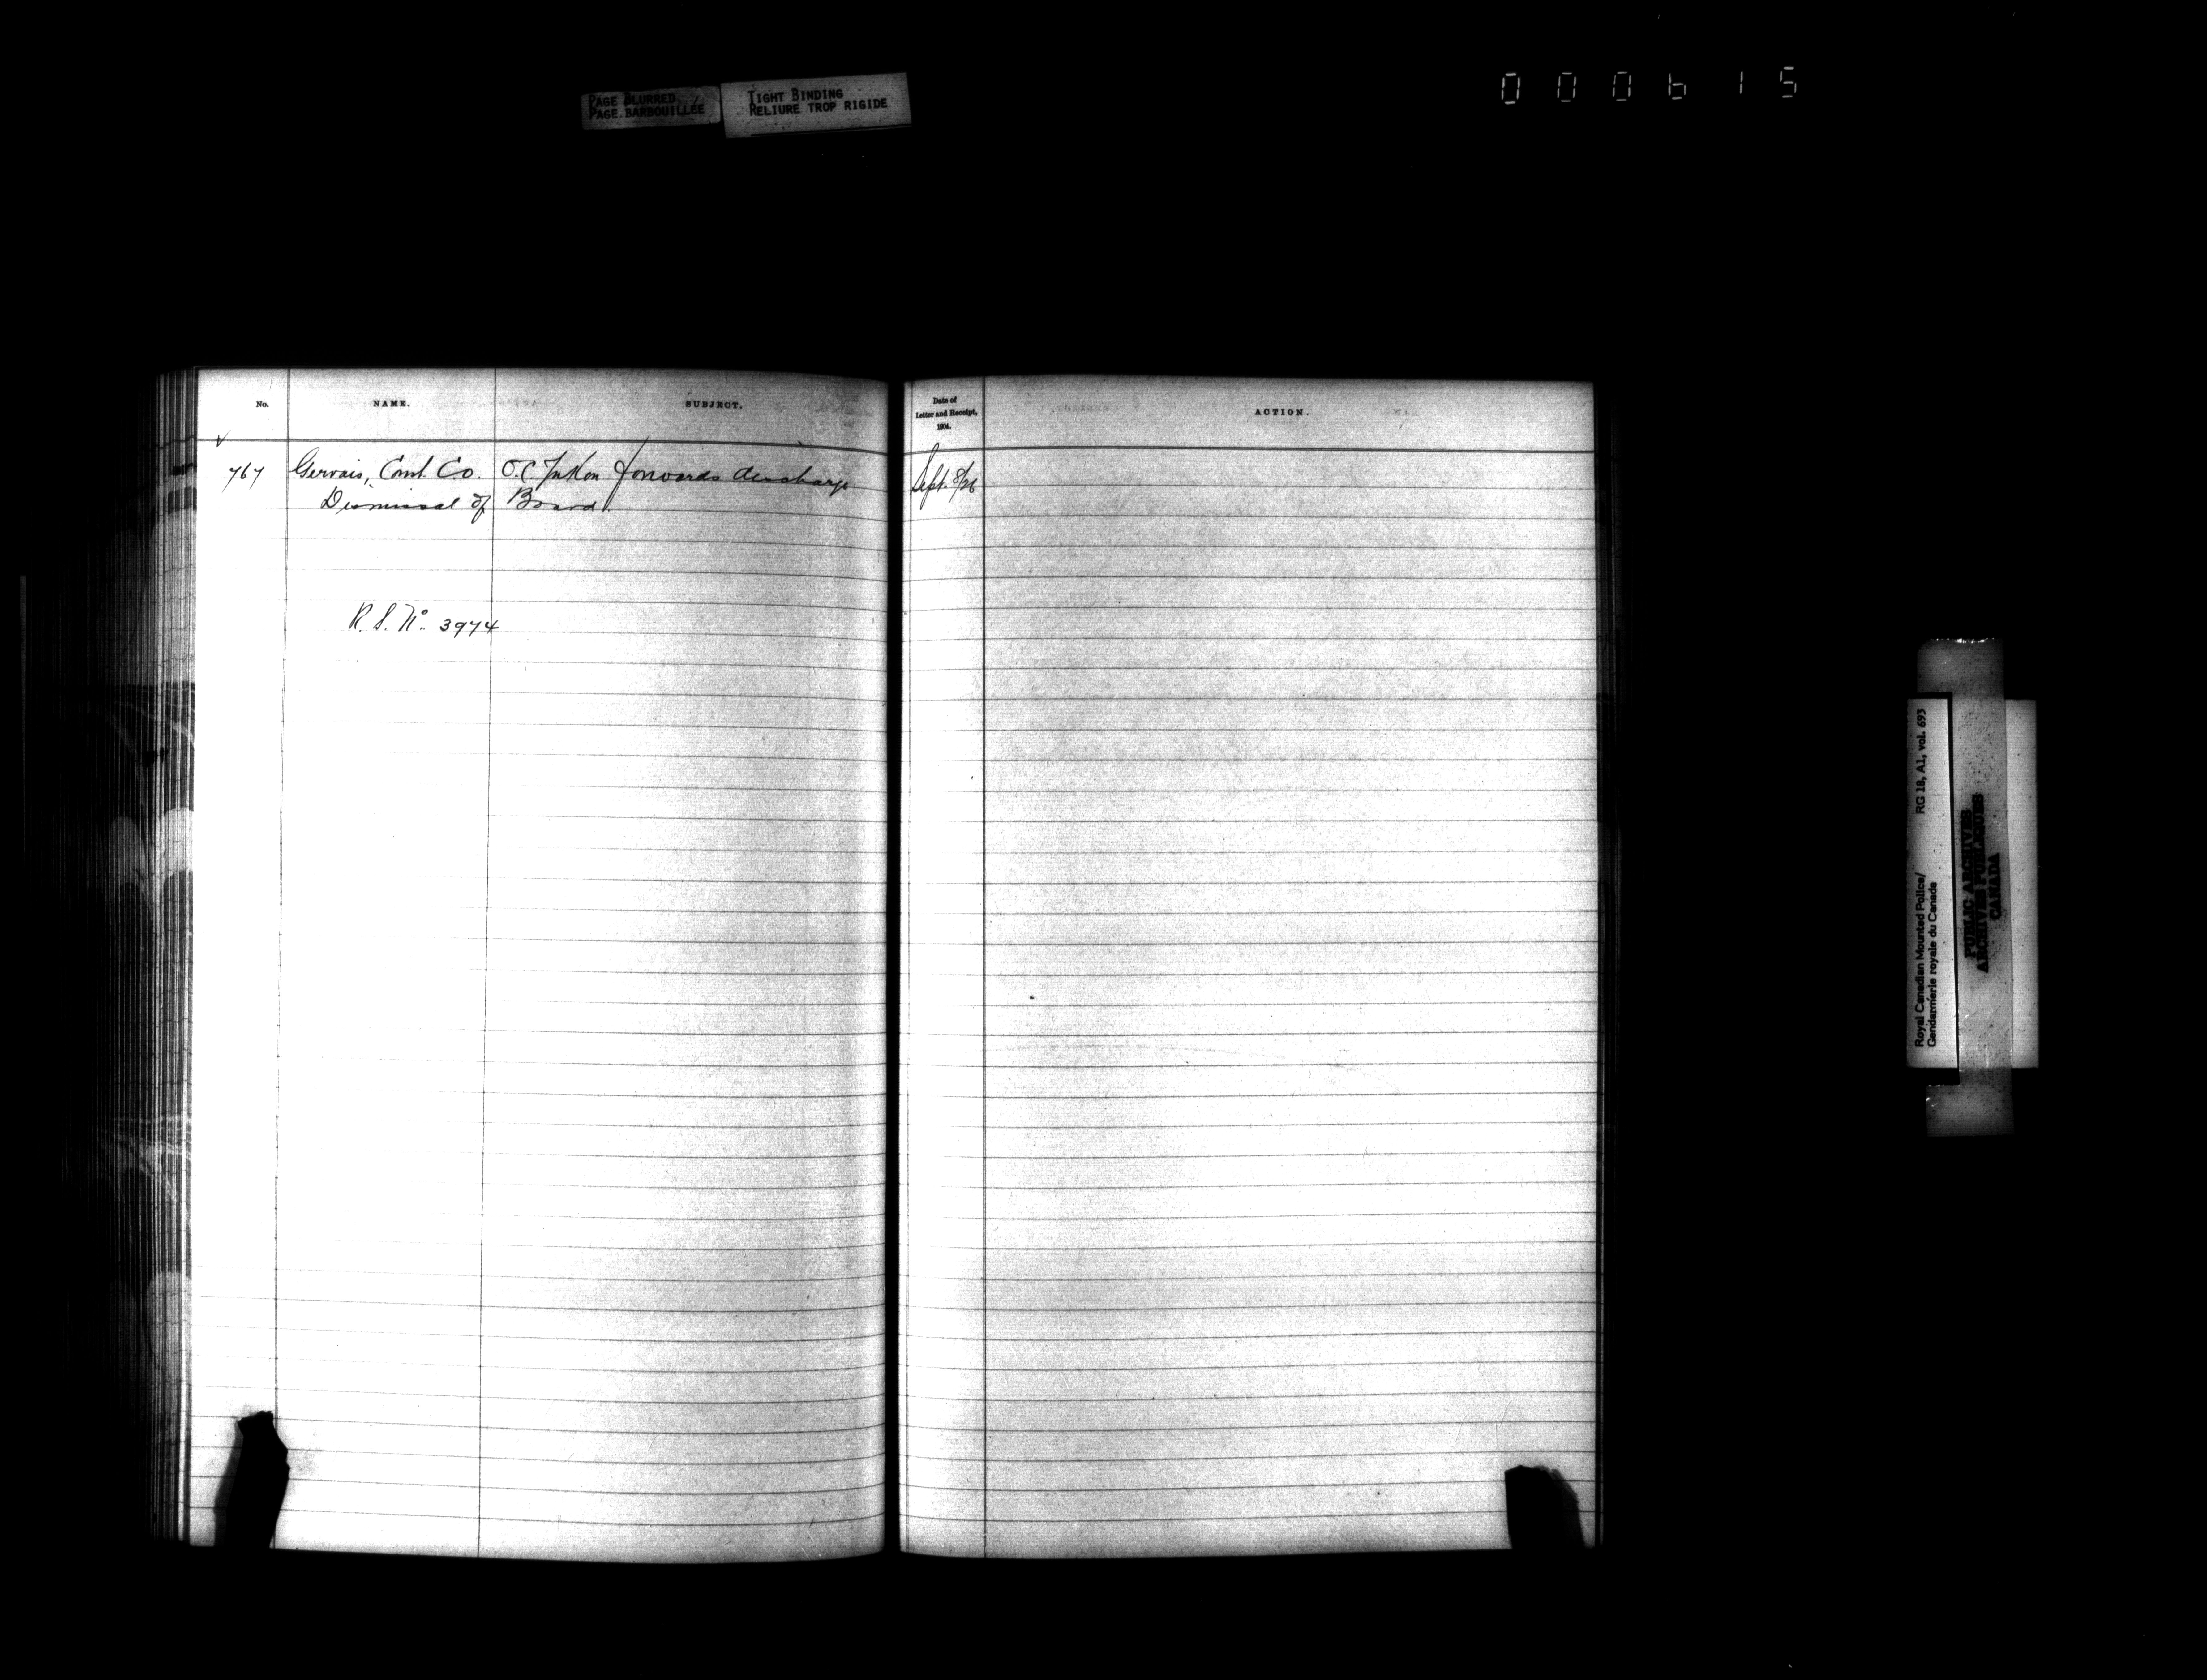 PAGE BLURRED
PAGE BARBOUILLÉE
TIGHT BINDING
RELIURE TROP RIGIDE
000615
No.
NAME.
SUBJECT.
Date of
Letter and Receipt,
1904.
ACTION.
767 Gervais, Const. Co. O.C. Yukon forwards discharge Sept. 8/26
Dismissal of Board.
R. S. No. 3974
Royal Canadian Mounted Police/
Gendarmerie royale du Canada
RG 18, A1, vol. 693
PUBLIC ARCHIVES
ARCHIVES PUBLIQUES
CANADA